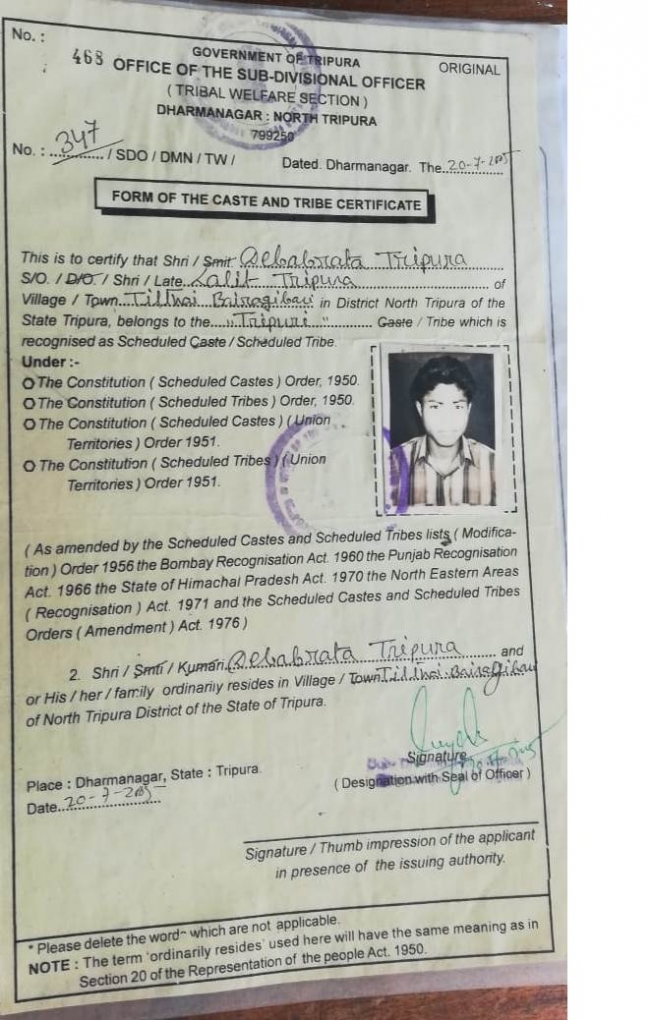 No. :
468
GOVERNMENT OF TRIPURA
ORIGINAL
OFFICE OF THE SUB-DIVISIONAL OFFICER
( TRIBAL WELFARE SECTION )
DHARMANAGAR : NORTH TRIPURA
799250
No. : 347 / SDO / DMN / TW / Dated. Dharmanagar. The 20-7-2005
FORM OF THE CASTE AND TRIBE CERTIFICATE
This is to certify that Shri / Smit. Debabrata Tripura
S/O. / D/O. / Shri / Late. Lalit Tripura of
Village / Town. Tilthai Bairagibari in District North Tripura of the
State Tripura, belongs to the "Tripuri" Caste / Tribe which is
recognised as Scheduled Caste / Scheduled Tribe.
Under :-
The Constitution ( Scheduled Castes ) Order, 1950.
The Constitution ( Scheduled Tribes ) Order, 1950.
The Constitution ( Scheduled Castes ) ( Union
Territories ) Order 1951.
The Constitution ( Scheduled Tribes ) ( Union
Territories ) Order 1951.
( As amended by the Scheduled Castes and Scheduled Tribes lists ( Modifica-
tion ) Order 1956 the Bombay Recognisation Act. 1960 the Punjab Recognisation
Act. 1966 the State of Himachal Pradesh Act. 1970 the North Eastern Areas
( Recognisation ) Act. 1971 and the Scheduled Castes and Scheduled Tribes
Orders ( Amendment ) Act. 1976 )
2. Shri / Smti / Kumari. Debabrata Tripura and
or His / her / family ordinarily resides in Village / Town Tilthai Bairagibari
of North Tripura District of the State of Tripura.
Signature
Place : Dharmanagar, State : Tripura.
( Designation with Seal of Officer )
Date 20-7-2005
Signature / Thumb impression of the applicant
in presence of the issuing authority.
* Please delete the word which are not applicable.
NOTE : The term 'ordinarily resides' used here will have the same meaning as in
Section 20 of the Representation of the people Act. 1950.